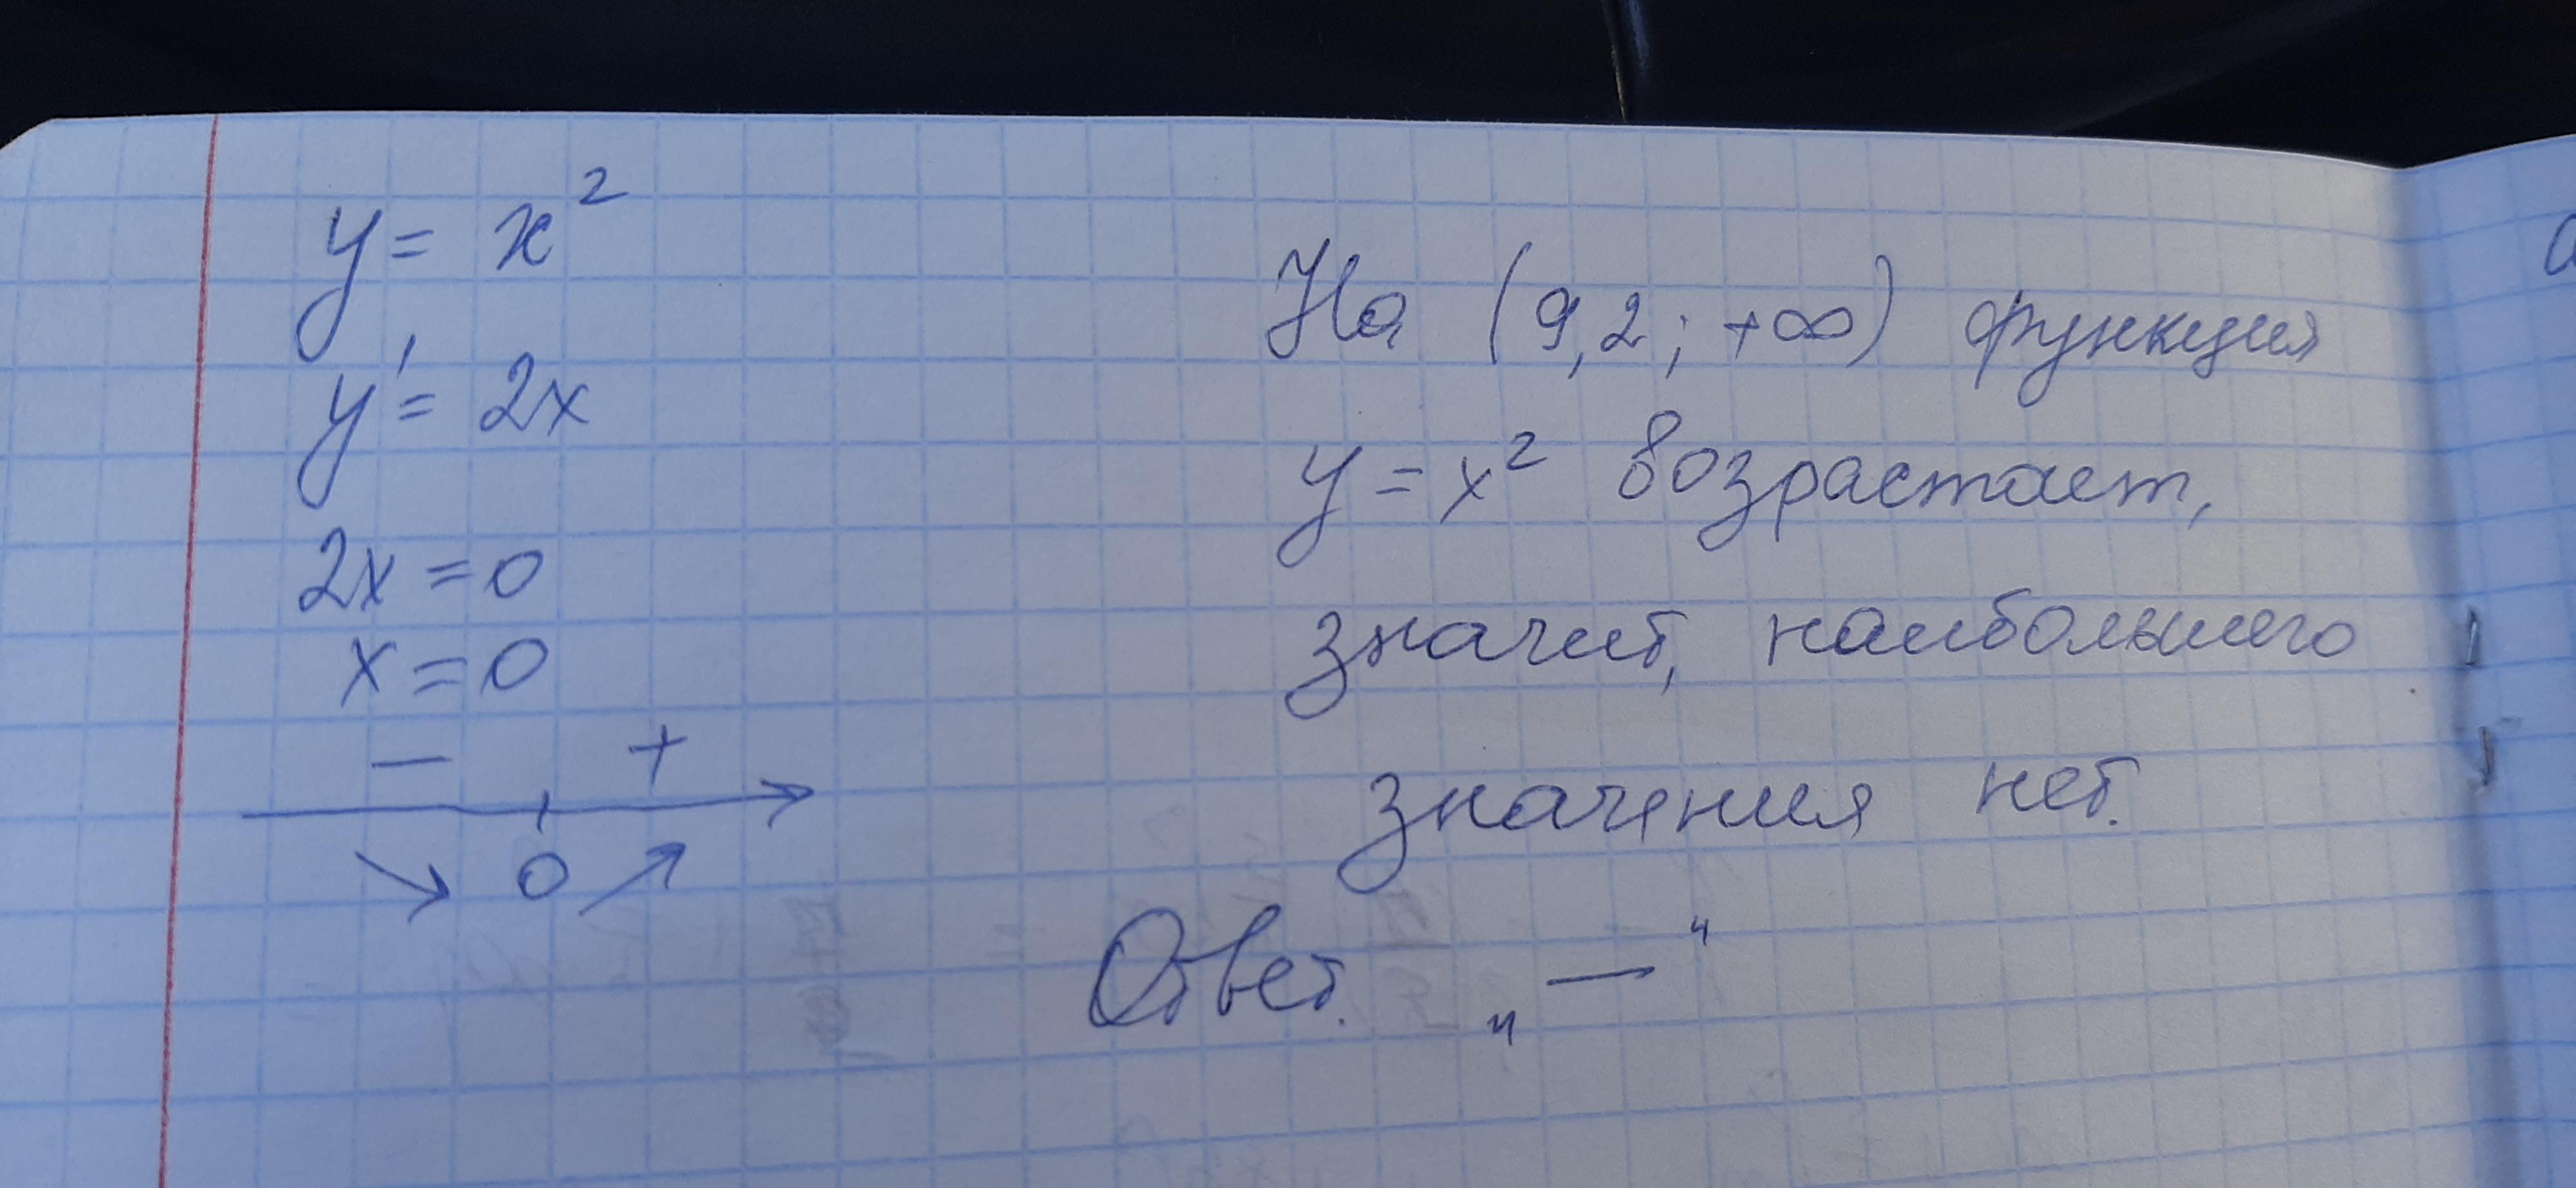 y = x²
y' = 2x
2x = 0
x = 0
− +
0
На (9,2; +∞) функция
y = x² возрастает,
значит, наибольшего
значения нет.
Ответ. „—“